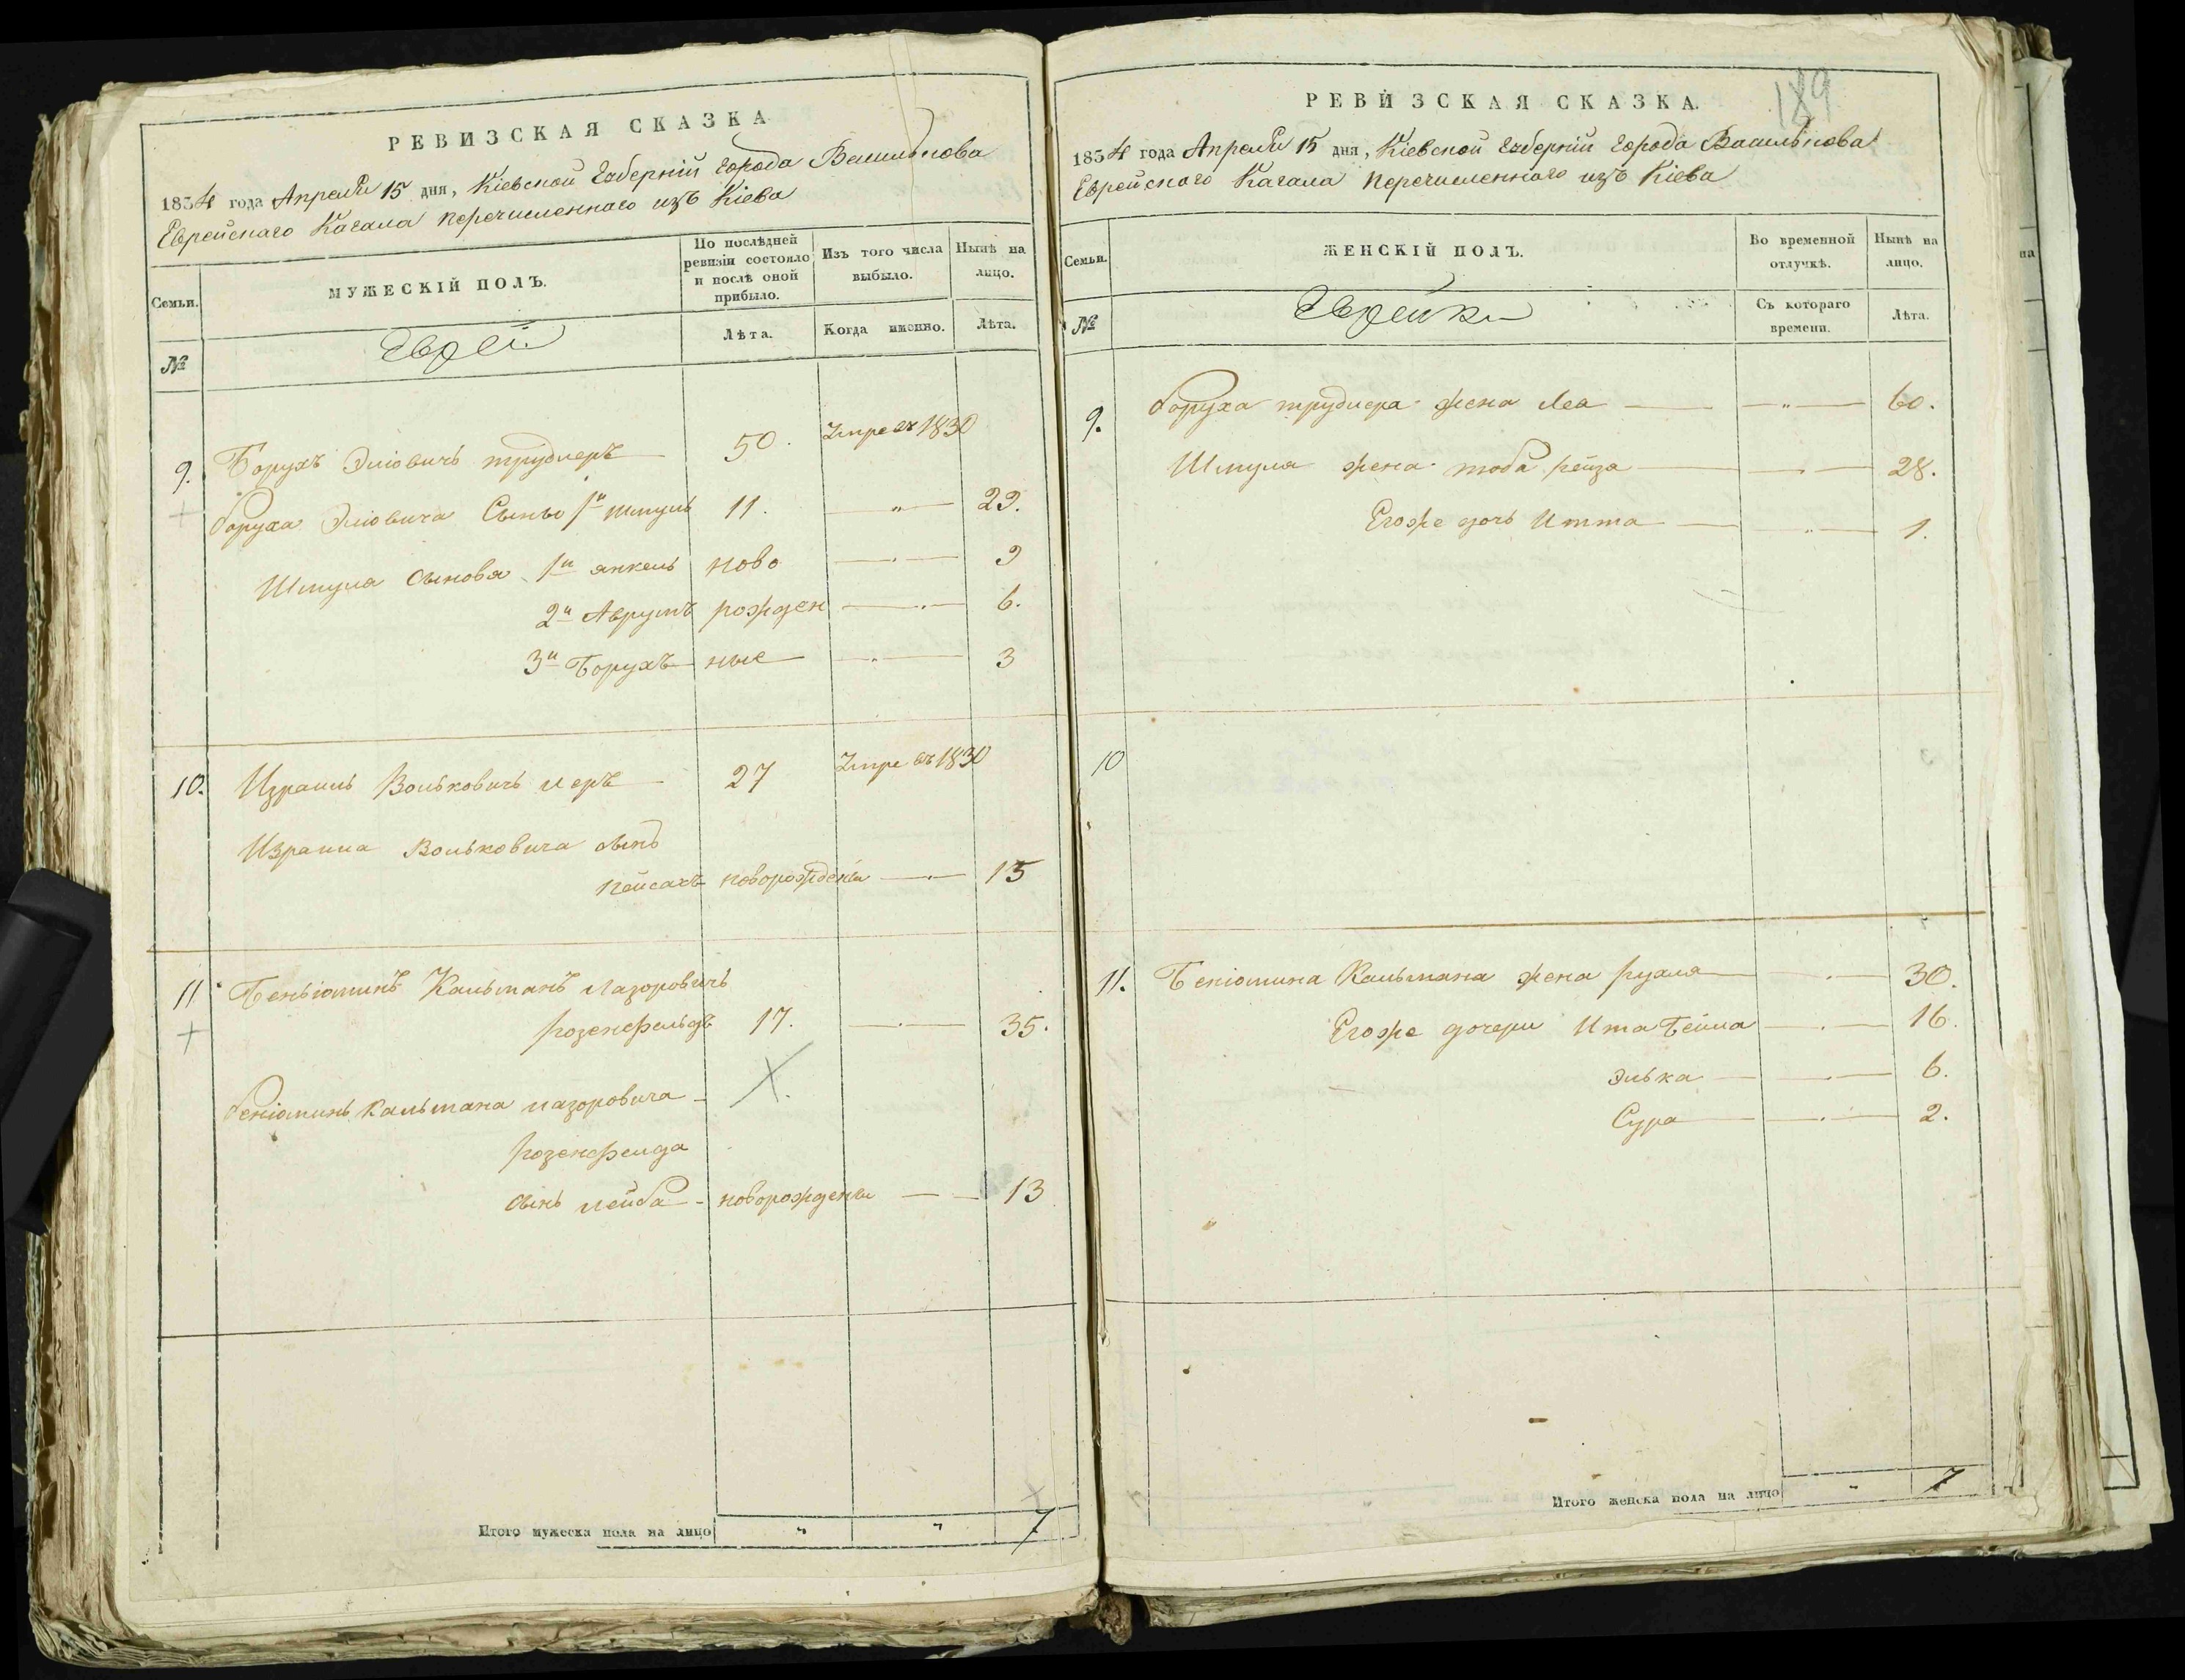 РЕВИЗСКАЯ СКАЗКА
1834 года Апреля 15 дня, Кіевской Губерніи Города Василькова
Еврейскаго Кагала перечисленнаго изъ Кіева
Семьи.
МУЖЕСКІЙ ПОЛЪ.
По послѣдней ревизіи состояло и послѣ оной прибыло.
Изъ того числа выбыло.
Нынѣ на лицо.
№
Евреи
Лѣта.
Когда именно.
Лѣта.
9. Борухъ Эліовичъ 50. Умре въ 1830
Боруха Эліовича Сынъ 1й Шмуль 11. — „ — 29.
Шмуля Сыновя 1й Янкель ново — „ — 9
2й Аврумъ рожден — „ — 6.
3й Борухъ ные — „ — 3
10. Израиль Вольковичъ 27 Умре въ 1830
Израиля Вольковича сынъ
Пейсахъ новорожденый — „ — 15
11 Беньіоминъ Кальманъ Лазоровичъ
Розенфельдъ 17. — „ — 35.
Беніоминъ Кальмана Лазоровича
Розенфелда
сынъ Лейба новорожденый — — 13
Итого мужеска пола на лицо „ „ 7
189
РЕВИЗСКАЯ СКАЗКА.
1834 года Апреля 15 дня, Кіевской Губерніи Города Василькова
Еврейскаго Кагала перечисленнаго изъ Кіева
Семьи.
ЖЕНСКІЙ ПОЛЪ.
Во временной отлучкѣ.
Нынѣ на лицо.
№
Еврейки
Съ котораго времени.
Лѣта.
9. Боруха жена Леа — „ — 60.
Шмуля жена Тоба Рейза — „ — 28.
Егоже дочь Итта — „ — 1.
10
11. Беніомина Кальмана жена Рухля — „ — 30.
Егоже дочери Ита Бейла — „ — 16.
Элька — „ — 6.
Сура — „ — 2.
Итого женска пола на лицо „ 7